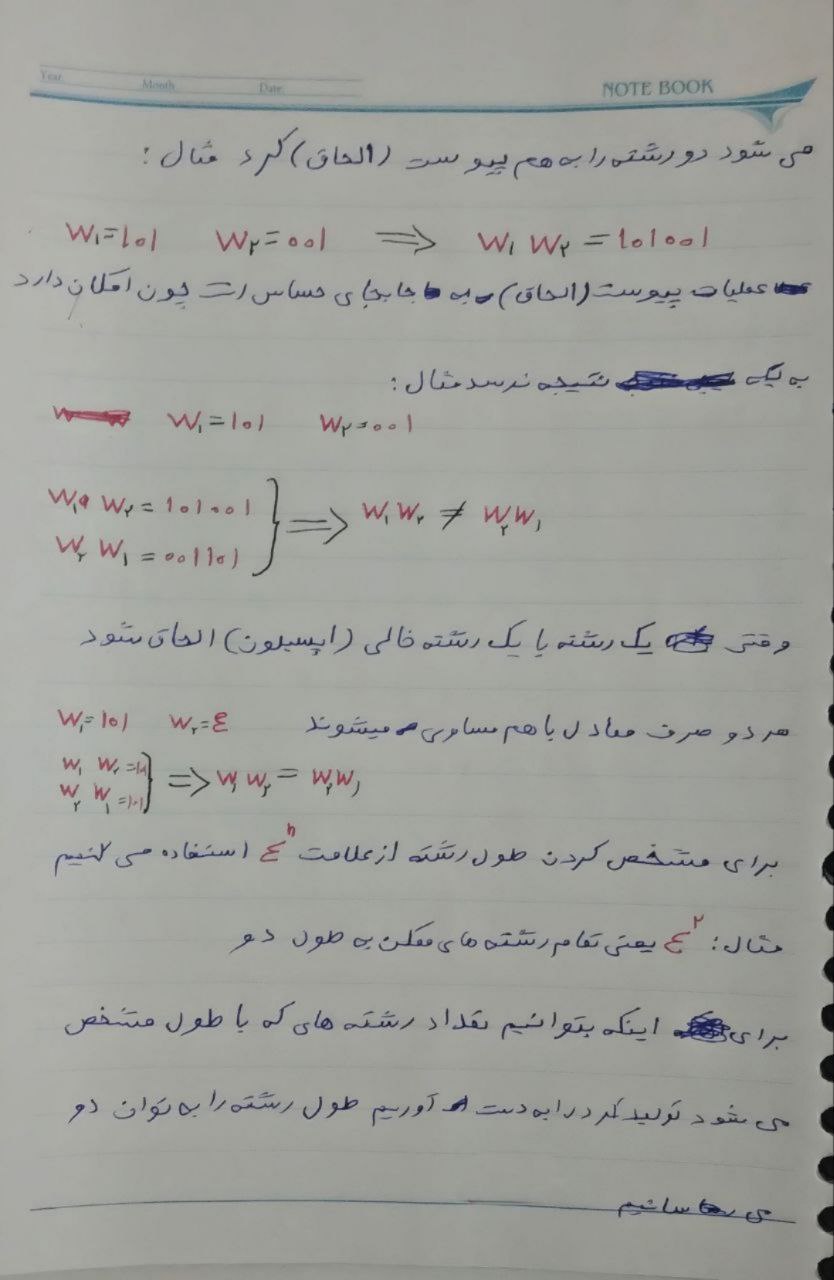 Year Month Date NOTE BOOK
می شود دو رشته را به هم پیوست (الحاق) کرد مثال:
W₁=101 W₂=001 ⇒ W₁ W₂ = 101001
عملیات پیوست (الحاق) به جابجای حساس است چون امکان دارد
به یک نتیجه نرسد مثال:
W₁=101 W₂=001
W₁ W₂ = 101001
⇒ W₁ W₂ ≠ W₂ W₁
W₂ W₁ = 001101
وقتی یک رشته با یک رشته خالی (اپسیلون) الحاق شود
هر دو طرف معادل با هم مساوی میشوند W₁=101 W₂=ε
W₁ W₂=101
⇒ W₁ W₂ = W₂ W₁
W₂ W₁=101
برای مشخص کردن طول رشته از علامت Σⁿ استفاده می کنیم
مثال: Σ² یعنی تمام رشته های ممکن به طول دو
برای اینکه بتوانیم تعداد رشته های که با طول مشخص
می شود تولید کرد را به دست آوریم طول رشته را به توان دو
می رسانیم